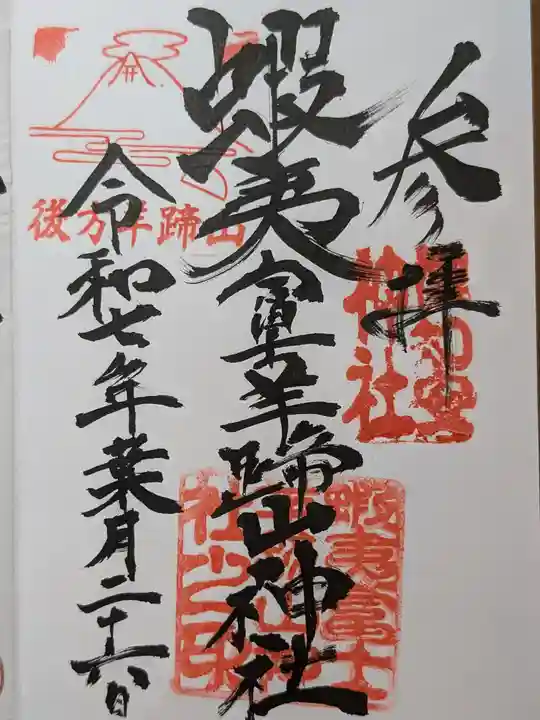 参拝
蝦夷富士羊蹄山神社
令和七年葉月二十六日
後方羊蹄山
神社
蝦夷富士